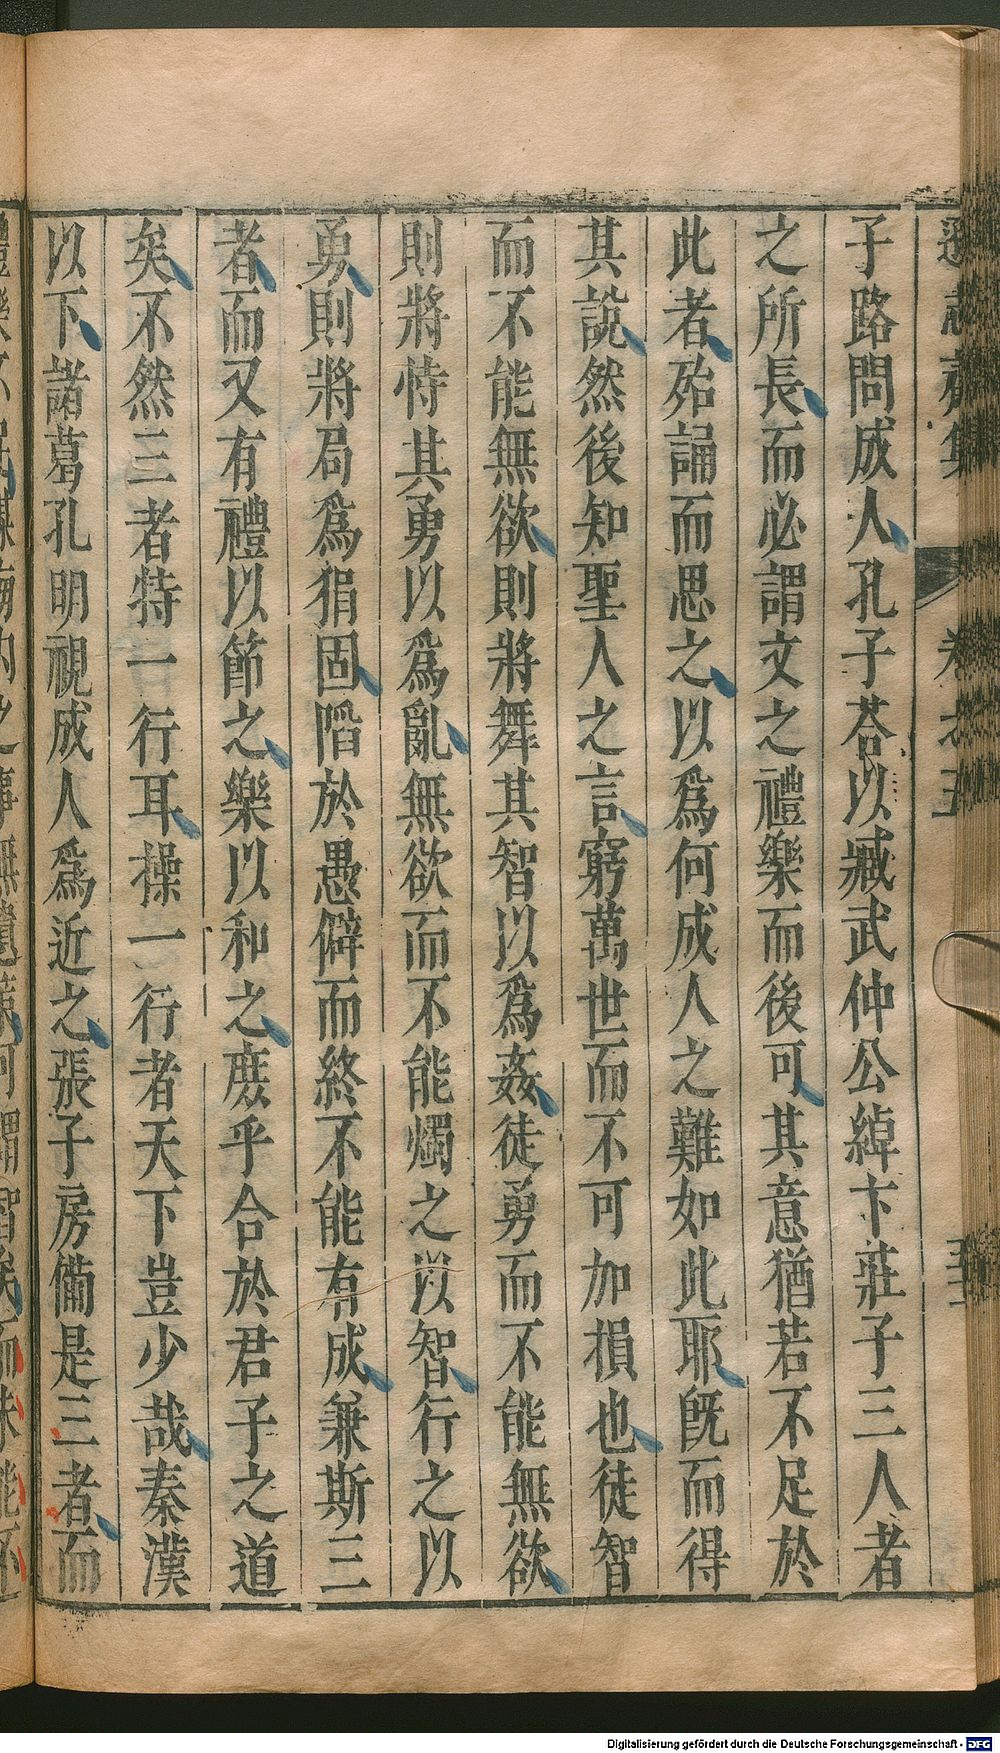 遜志齋集 卷之五
子路問成人孔子荅以臧武仲公綽卞莊子三人者
之所長而必謂文之禮樂而後可其意猶若不足於
此者殆誦而思之以爲何成人之難如此耶旣而得
其說然後知聖人之言窮萬世而不可加損也徒智
而不能無欲則將舞其智以爲姦徒勇而不能無欲
則將恃其勇以爲亂無欲而不能燭之以智行之以
勇則將局爲狷固陷於愚僻而終不能有成兼斯三
者而又有禮以節之樂以和之庶乎合於君子之道
矣不然三者特一行耳操一行者天下豈少哉秦漢
以下諸葛孔明視成人爲近之張子房備是三者而
Digitalisierung gefördert durch die Deutsche Forschungsgemeinschaft - DFG